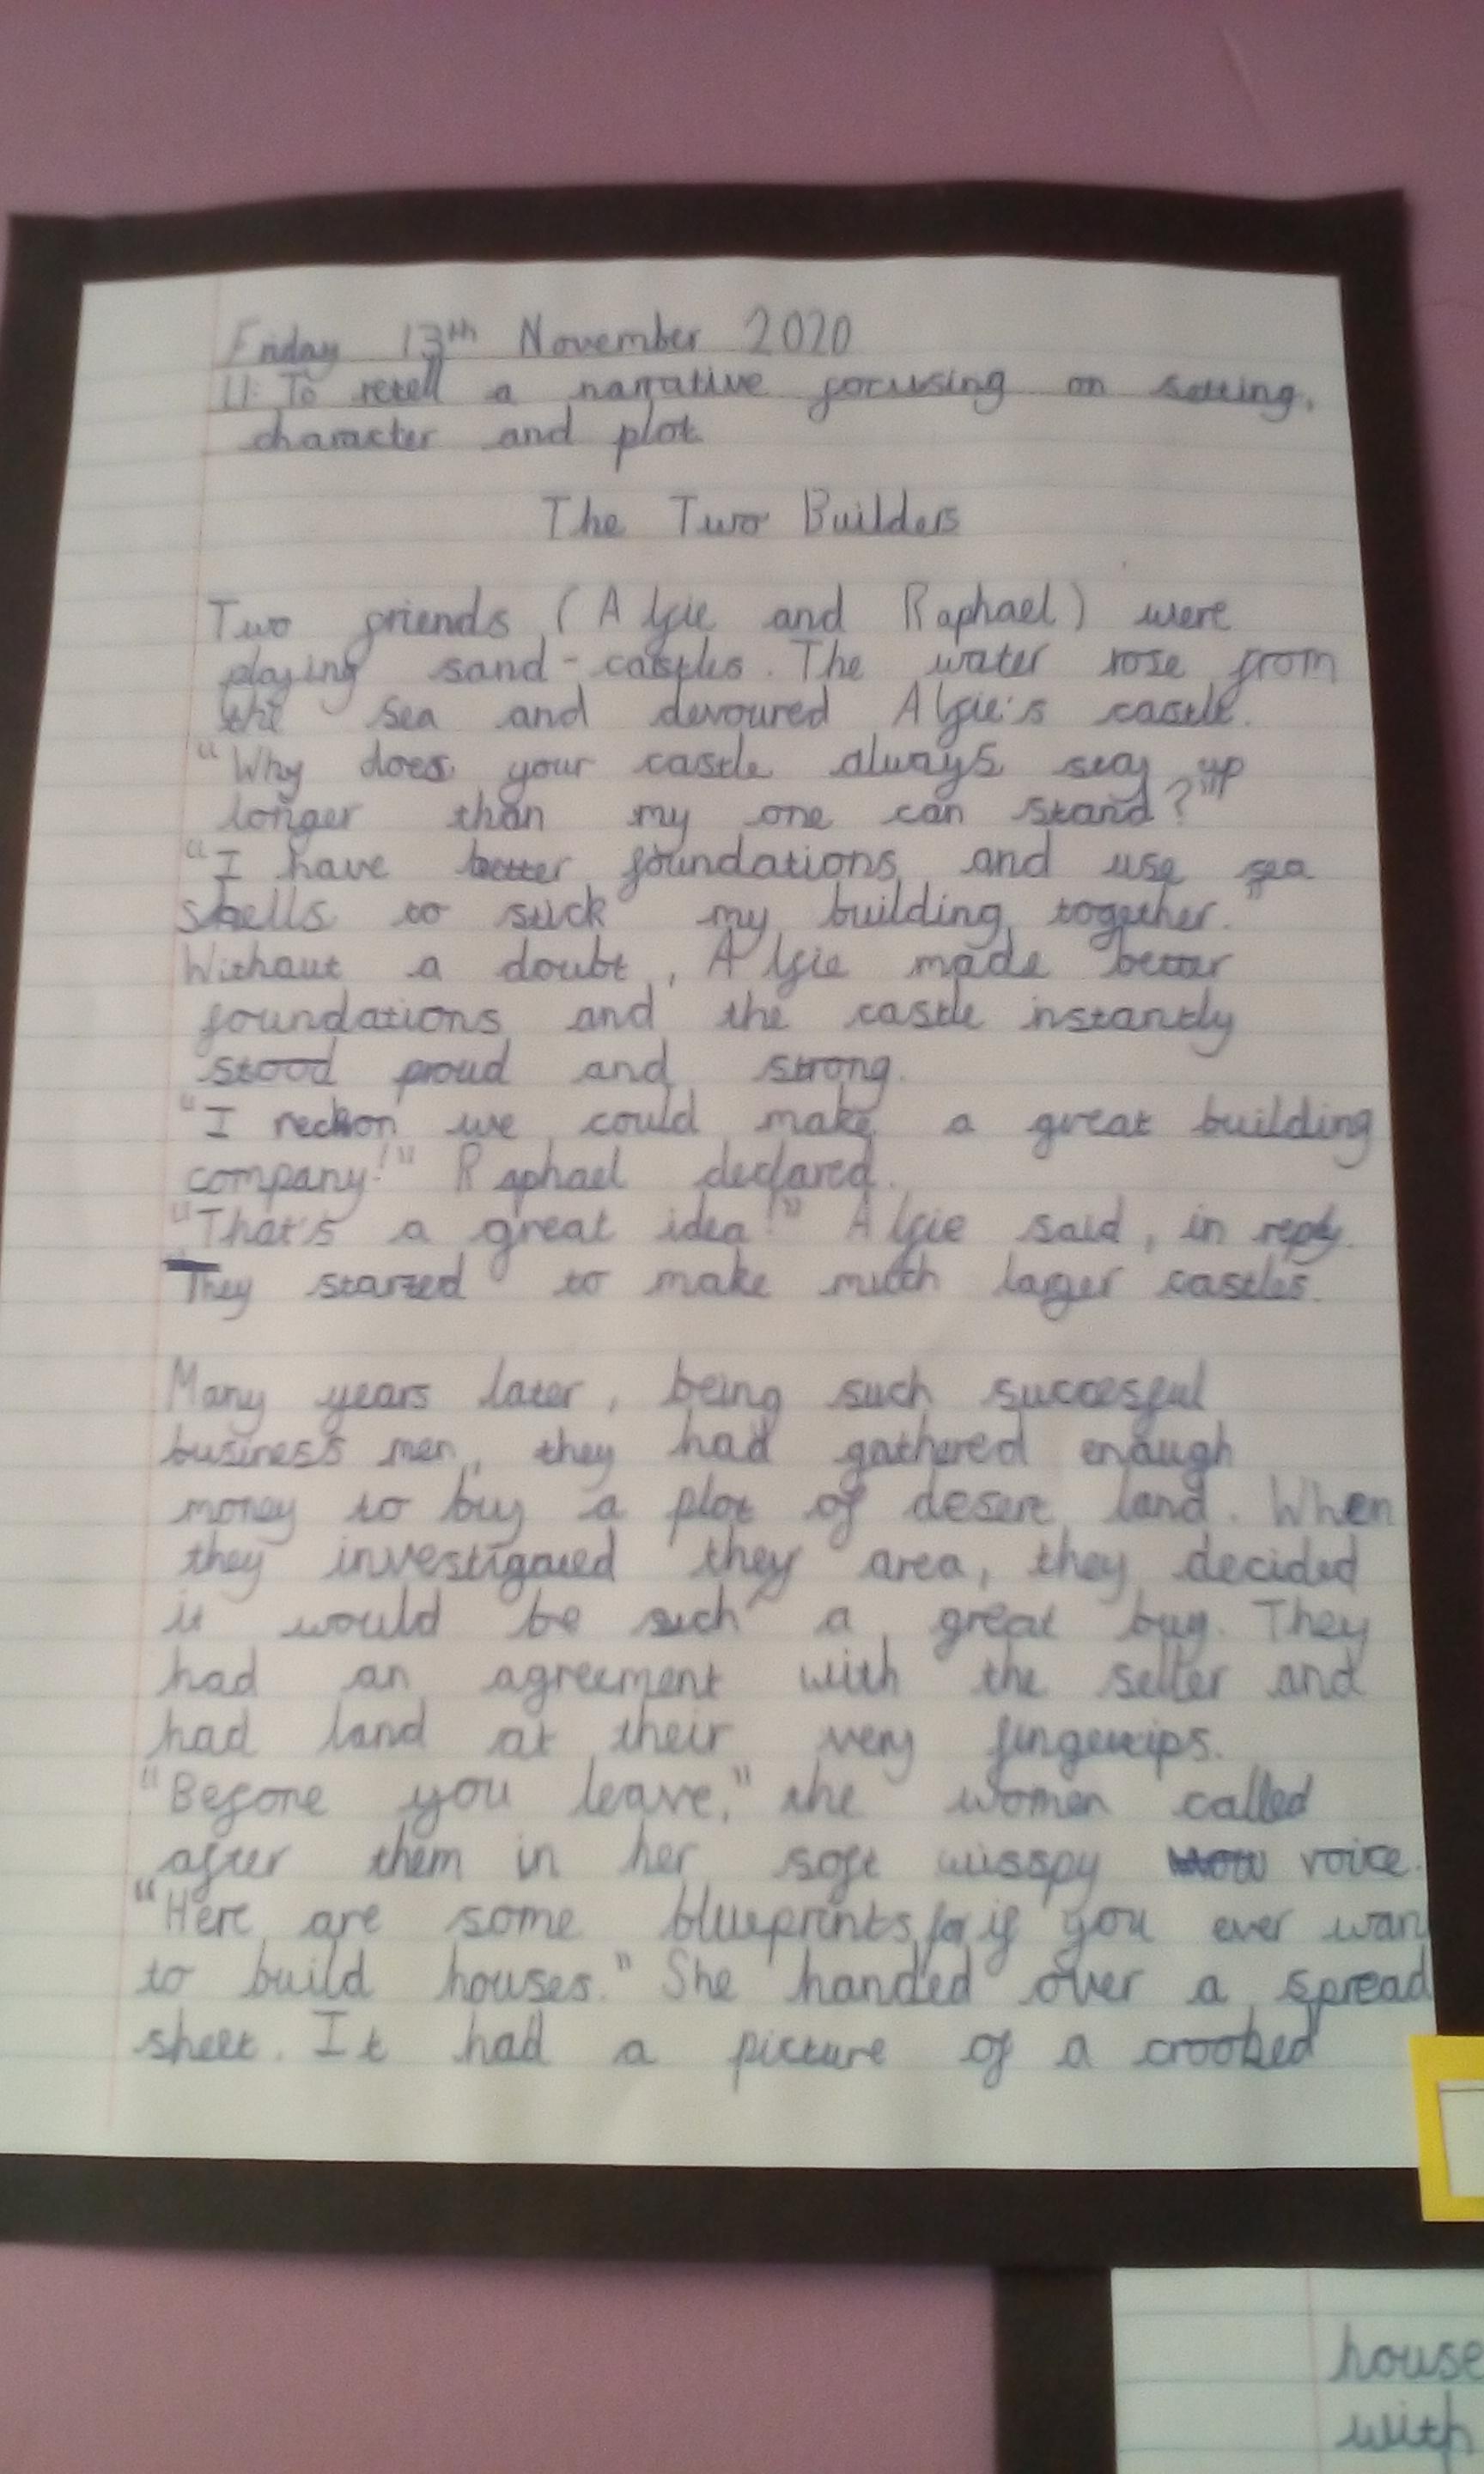 Friday 13th November 2020
LI: To retell a narrative focusing on setting,
character and plot
The Two Builders
Two friends (Alfie and Raphael) were
playing sand-castles. The water rose from
the sea and devoured Alfie's castle.
"Why does your castle always stay up
longer than my one can stand?"
"I have better foundations and use sea
shells to stick my building together."
Without a doubt, Alfie made better
foundations and the castle instantly
stood proud and strong.
"I reckon we could make a great building
company!" Raphael declared.
"That's a great idea!" Alfie said, in reply.
They started to make much larger castles.
Many years later, being such succesful
business men, they had gathered enough
money to buy a plot of desert land. When
they investigated they area, they decided
it would be such a great buy. They
had an agreement with the seller and
had land at their very fingertips.
"Before you leave," the women called
after them in her soft wisspy voice.
"Here are some blueprints for if you ever wan
to build houses." She handed over a spread
sheet. It had a picture of a crooked
house
with